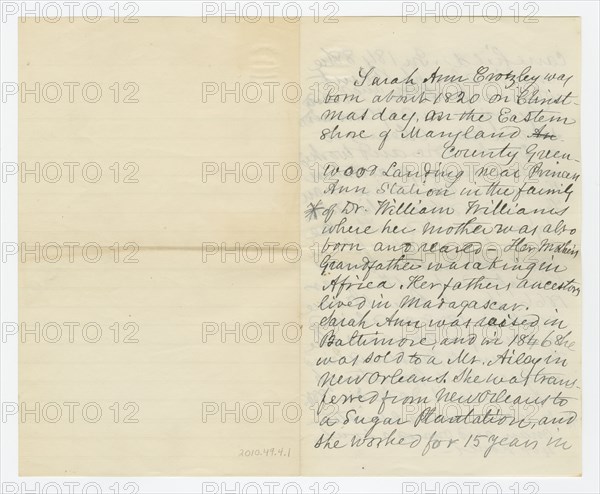 Sarah Ann Crozley was
born about 1820 on Christ-
mas day, on the Eastern
Shore of Maryland An
County Green-
wood Landing near Princess
Ann Station in the family
* of Dr. William Williams
where her mother was also
born and reared - Her Mothers
Grandfather was a king in
Africa. Her fathers ancestors
lived in Madagascar.
Sarah Ann was raised in
Baltimore, and in 1846 she
was sold to a Mr. in
New Orleans. She was trans-
ferred from New Orleans to
a Sugar Plantation, and
she worked for 15 years in
2010.49.4.1
PHOTO 12